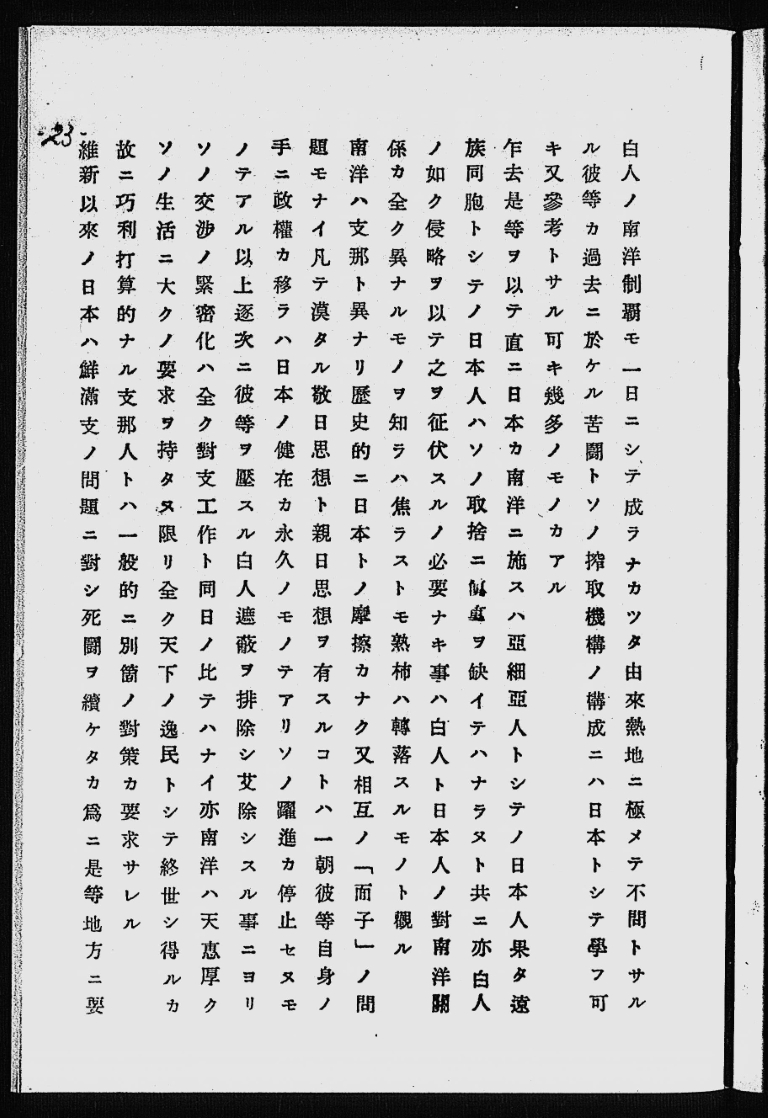 白人ノ南洋制覇モ一日ニシテ成ラナカツタ由來熱地ニ極メテ不問トサル
ル彼等カ過去ニ於ケル苦鬪トソノ搾取機構ノ構成ニハ日本トシテ學フ可
キ又參考トサル可キ幾多ノモノカアル
乍去是等ヲ以テ直ニ日本カ南洋ニ施スハ亞細亞人トシテノ日本人果タ遠
族同胞トシテノ日本人ハソノ取捨ニ愼重ヲ缺イテハナラヌト共ニ亦白人
ノ如ク侵略ヲ以テ之ヲ征伏スルノ必要ナキ事ハ白人ト日本人ノ對南洋關
係カ全ク異ナルモノヲ知ラハ焦ラストモ熟柿ハ轉落スルモノト觀ル
南洋ハ支那ト異ナリ歷史的ニ日本トノ摩擦カナク又相互ノ「面子」ノ問
題モナイ凡テ漠タル敬日思想ト親日思想ヲ有スルコトハ一朝彼等自身ノ
手ニ政權カ移ラハ日本ノ健在カ永久ノモノテアリソノ躍進カ停止セヌモ
ノテアル以上逐次ニ彼等ヲ壓スル白人遮蔽ヲ排除シ艾除シスル事ニヨリ
ソノ交渉ノ緊密化ハ全ク對支工作ト同日ノ比テハナイ亦南洋ハ天惠厚ク
ソノ生活ニ大クノ要求ヲ持タヌ限リ全ク天下ノ逸民トシテ終世シ得ルカ
故ニ巧利打算的ナル支那人トハ一般的ニ別箇ノ對策カ要求サレル
維新以來ノ日本ハ鮮滿支ノ問題ニ對シ死鬪ヲ續ケタカ爲ニ是等地方ニ要
-23-